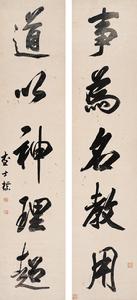 事為名教用
道以神理超
查士標